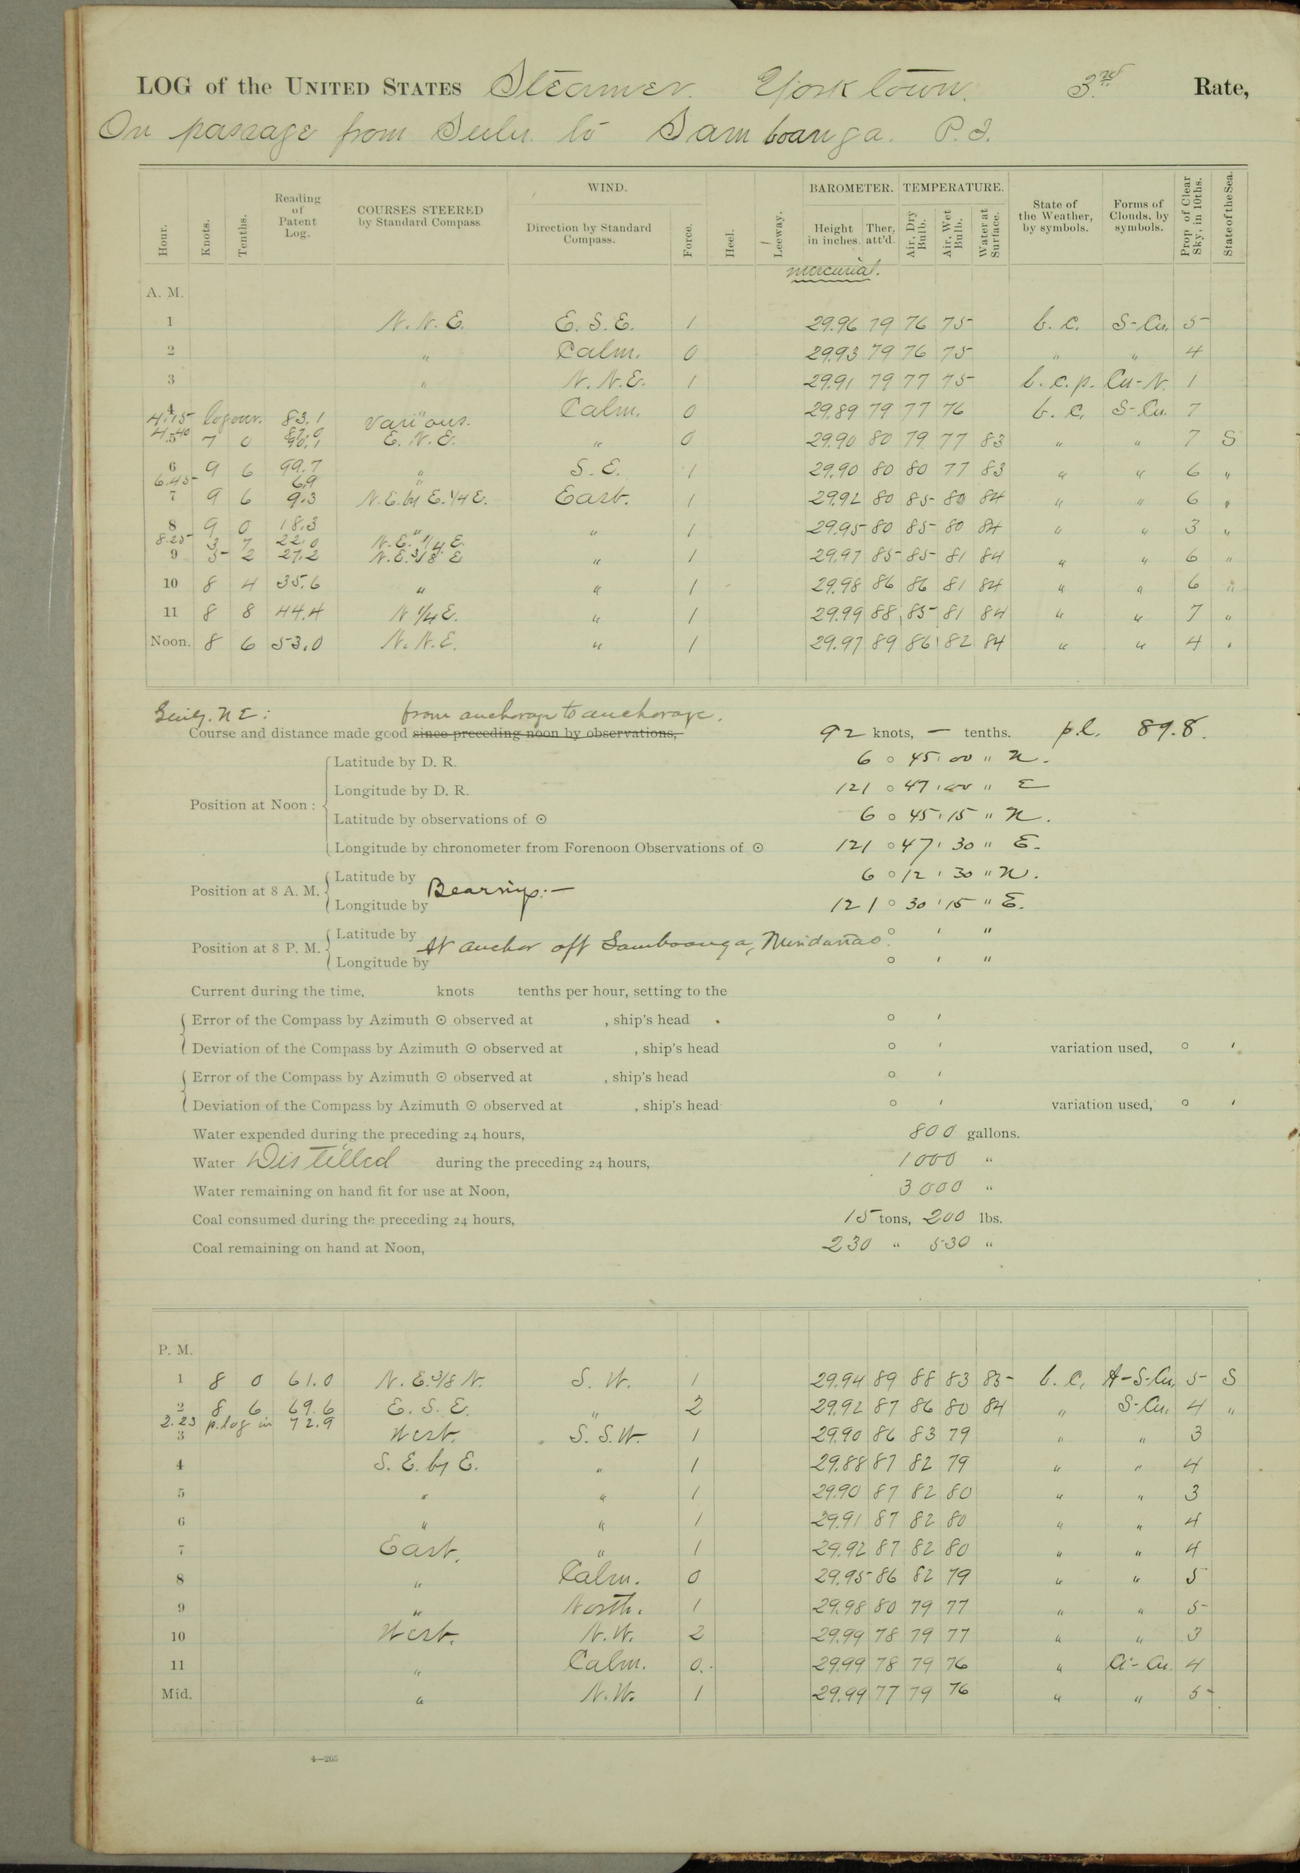 LOG of the UNITED STATES Steamer. Yorktown. 3rd Rate,
On passage from Sulu to Samboanga. P.I.
Hour. Knots. Tenths. Reading of Patent Log. COURSES STEERED by Standard Compass WIND. Direction by Standard Compass. Force. Heel. Leeway. BAROMETER. Height in inches. Ther. att'd. TEMPERATURE. Air, Dry Bulb. Air, Wet Bulb. Water at Surface. State of the Weather, by symbols. Forms of Clouds, by symbols. Prop of Clear Sky, in 10ths. State of the Sea.
mercurial.
A. M.
1 N.N.E. E.S.E. 1 29.96 79 76 75 b.c. S-Cu. 5
2 " Calm. 0 29.93 79 76 75 " " 4
3 " N.N.E. 1 29.91 79 77 75 b.c.p. Cu-N. 1
4 " Calm. 0 29.89 79 77 76 b.c. S-Cu. 7
4.15 log over. 83.1 various.
4.40
5 7 0 90.1 E.N.E. " 0 29.90 80 79 77 83 " " 7 S
6 9 6 99.7 " S.E. 1 29.90 80 80 77 83 " " 6 "
6.45 6.9 "
7 9 6 9.3 N.E. by E. 1/4 E. East. 1 29.92 80 85 80 84 " " 6 "
8 9 0 18.3 " " 1 29.95 80 85 80 84 " " 3 "
8.25 3 7 22.0 N.E. 1/4 E.
9 5 2 27.2 N.E. 3/8 E " 1 29.97 85 85 81 84 " " 6 "
10 8 4 35.6 " " 1 29.98 86 86 81 84 " " 6 "
11 8 8 44.4 N 1/4 E. " 1 29.99 88 85 81 84 " " 7 "
Noon. 8 6 53.0 N.N.E. " 1 29.97 89 86 82 84 " " 4 "
N E: from anchorage to anchorage.
Course and distance made good since preceding noon by observations, 92 knots, — tenths. p.l. 89.8.
Position at Noon: Latitude by D. R. 6 ° 45 ' 00 " N.
Longitude by D. R. 121 ° 47 ' 00 " E
Latitude by observations of ☉ 6 ° 45 ' 15 " N.
Longitude by chronometer from Forenoon Observations of ☉ 121 ° 47 ' 30 " E.
Position at 8 A. M. Latitude by Bearings.— 6 ° 12 ' 30 " N.
Longitude by 121 ° 30 ' 15 " E.
Position at 8 P. M. Latitude by At anchor off Samboanga, Mindanao. ° ' "
Longitude by ° ' "
Current during the time, knots tenths per hour, setting to the
Error of the Compass by Azimuth ☉ observed at , ship's head ° '
Deviation of the Compass by Azimuth ☉ observed at , ship's head ° ' variation used, ° '
Error of the Compass by Azimuth ☉ observed at , ship's head ° '
Deviation of the Compass by Azimuth ☉ observed at , ship's head ° ' variation used, ° '
Water expended during the preceding 24 hours, 800 gallons.
Water Distilled during the preceding 24 hours, 1000 "
Water remaining on hand fit for use at Noon, 3000 "
Coal consumed during the preceding 24 hours, 15 tons, 200 lbs.
Coal remaining on hand at Noon, 230 " 530 "
P. M.
1 8 0 61.0 N.E. 3/8 N. S.W. 1 29.94 89 88 83 83 b.c. A-S-Cu, 5 S
2 8 6 69.6 E.S.E. " 2 29.92 87 86 80 84 " S-Cu. 4 "
2.23 p.log in 72.9
3 West. S.S.W. 1 29.90 86 83 79 " " 3
4 S.E. by E. " 1 29.88 87 82 79 " " 4
5 " " 1 29.90 87 82 80 " " 3
6 " " 1 29.91 87 82 80 " " 4
7 East. " 1 29.92 87 82 80 " " 4
8 " Calm. 0 29.95 86 82 79 " " 5
9 " North. 1 29.98 80 79 77 " " 5
10 West. N.W. 2 29.99 78 79 77 " " 3
11 " Calm. 0. 29.99 78 79 76 " Ci-Cu. 4
Mid. " N.W. 1 29.99 77 79 76 " " 5
4—265